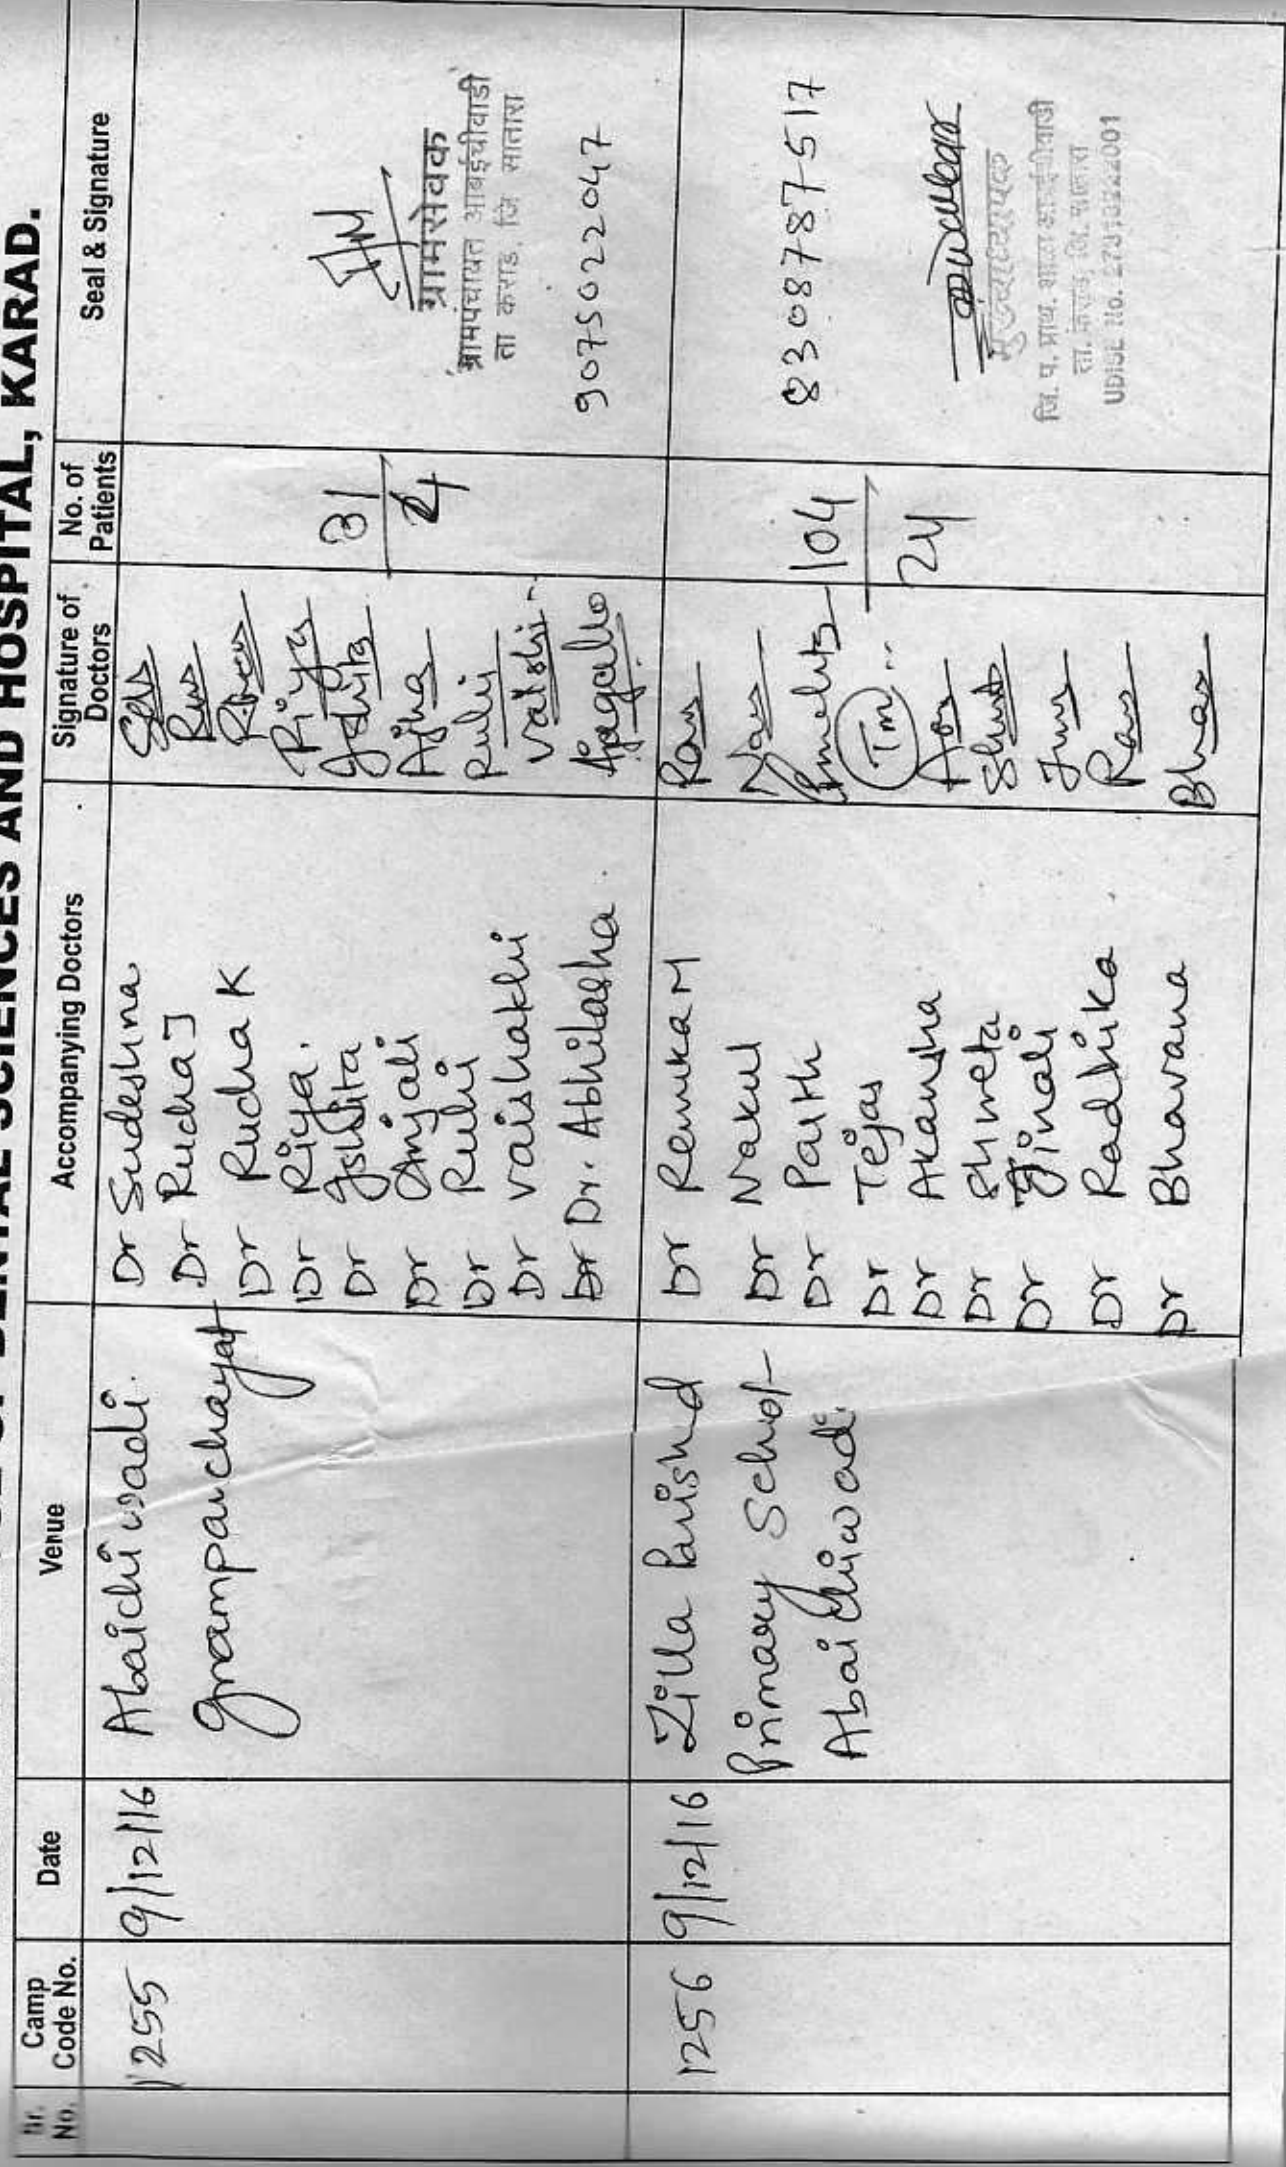 DENTAL SCIENCES AND HOSPITAL, KARAD.
Sr. No.
Camp Code No.
Date
Venue
Accompanying Doctors
Signature of Doctors
No. of Patients
Seal & Signature
1255
9/12/16
Abaichiwadi
grampanchayat
Dr Sudeshna
Dr Rucha J
Dr Rucha K
Dr Riya.
Dr Ishita
Dr Anjali
Dr Ruhi
Dr Vaishakhi
Dr Dr. Abhilasha.
Riya
Ishita
Ruhi
Vaishi
31
4
ग्रामसेवक
ग्रामपंचायत आबईचीवाडी
ता कराड, जि सातारा
9075022047
1256
9/12/16
Zilla Parishd
Primary School
Abaichiwadi
Dr Renuka M
Dr Nakul
Dr Parth
Dr Tejas
Dr Akansha
Dr Shweta
Dr Jinali
Dr Radhika
Dr Bhavana
Tm
104
24
8308787517
मुख्याध्यापक
जि. प. प्राथ. शाळा आबईचीवाडी
ता. कराड जि. सातारा
UDISE No.